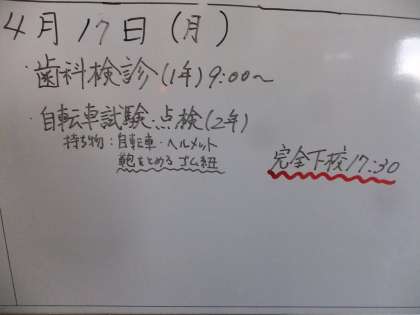 4月17日(月)
・歯科検診(1年)9:00〜
・自転車試験・点検(2年)
持ち物:自転車・ヘルメット
鞄をとめるゴム紐
完全下校17:30